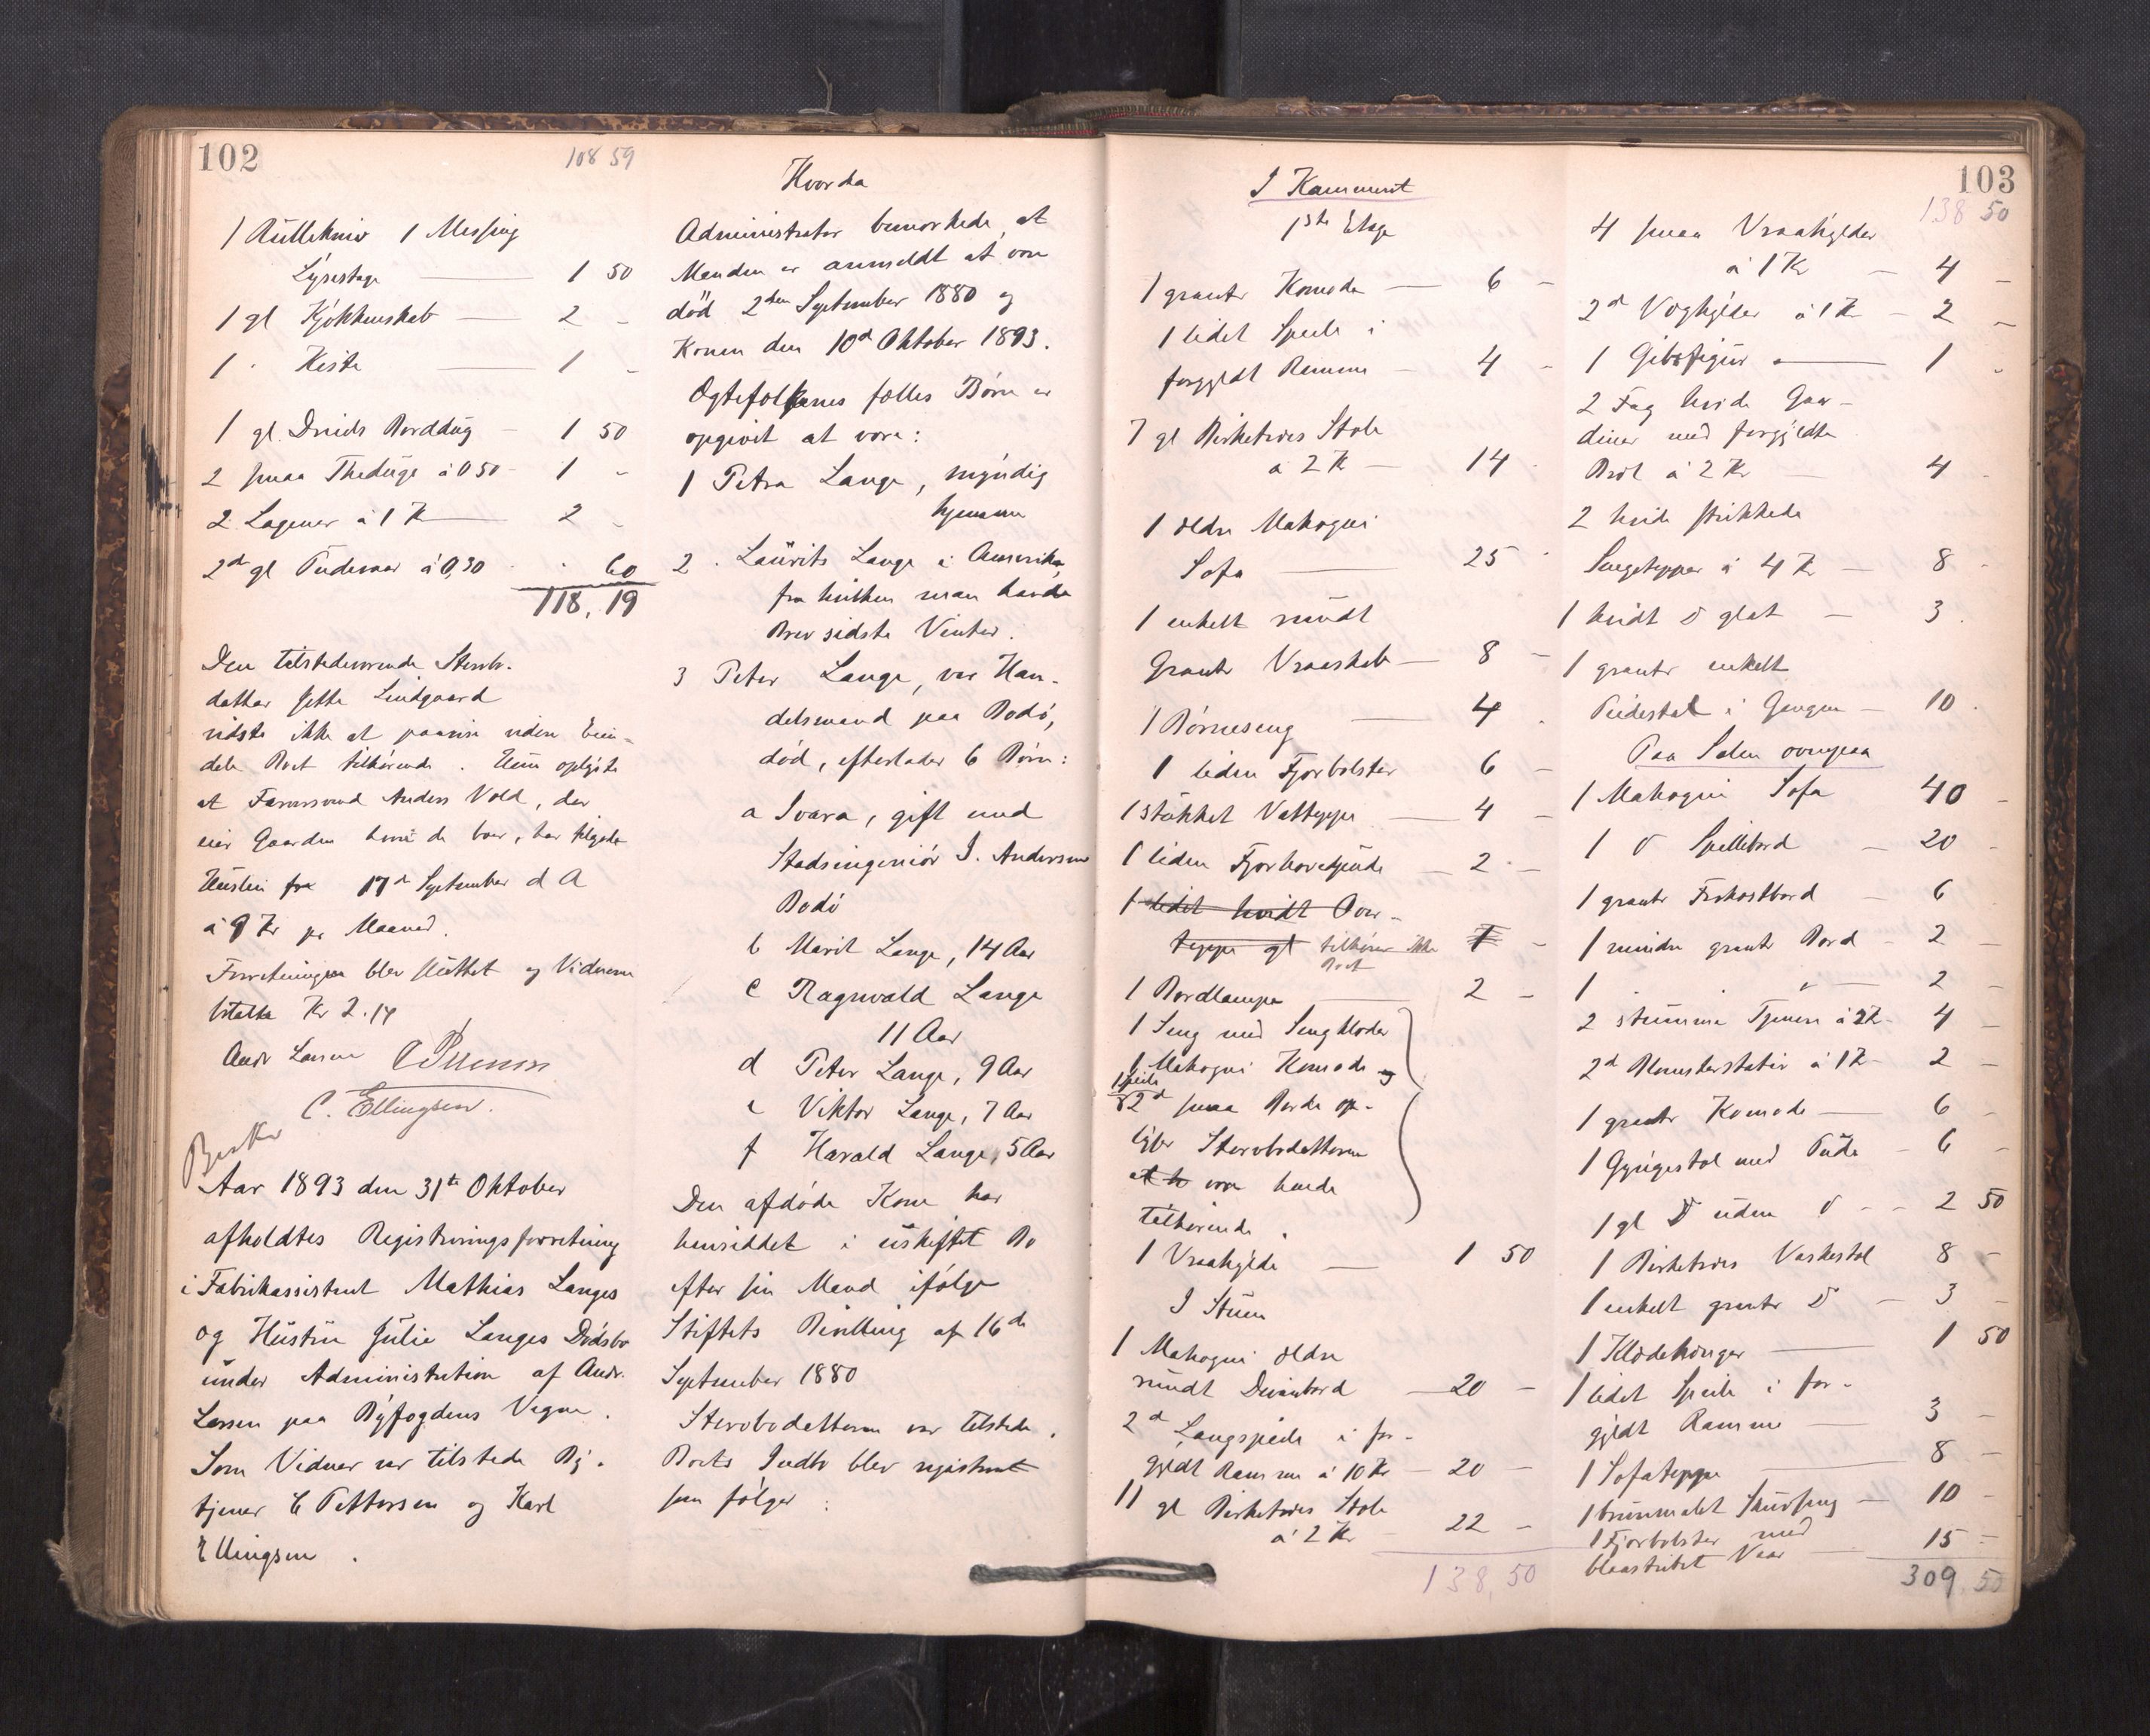 102
108 59
1 Rullekniv 1 Messing
Lysestage 1 50
1 gl Kjøkkenskab 2 -
1 " Kiste 1 -
1 gl. Dreiels Borddug 1 50
2 smaa Theduge à 0 50 1 -
2 Lagener à 1 Kr 2 -
2d gl Pudevaar à 0,30 " 60
118,19
Den tilstedeværende Stervb.
datter Jette Lindgaard
vidste ikke at paavise videre Eien-
dele Boet tilhørende. Hun oplyste
at Formand Anders Vold, der
eier Gaarden hvori de boer, har tilgode
Husleie fra 17d September d A
à 9 Kr pr Maaned.
Forretningen blev sluttet og Vidnerne
betalte Kr 2.14
Andr Larsen C Pettersen
C. Ellingsen.
Aar 1893 den 31te Oktober
afholdtes Registreringsforretning
i Fabrikassistent Mathias Langes
og Hustru Julie Langes Dødsbo
under Administration af Andr.
Larsen paa Byfogdens Vegne.
Som Vidner var tilstede By-
tjener C Pettersen og Karl
Ellingsen.
Hvorda
Administrator bemærkede, at
Manden er anmeldt at være
død 2den September 1880 og
Konen den 10d Oktober 1893.
Ægtefolkenes fælles Børn er
opgivet at være:
1 Petra Lange, myndig
hjemme
2. Laurits Lange i Amerika,
fra hvilken man havde
Brev sidste Vinter.
3 Peter Lange, var Han-
delsmand paa Bodø,
død, efterlader 6 Børn:
a Svava, gift med
Stadsingeniør J. Andersen
Bodø
b Marit Lange, 14 Aar
c Ragnvald Lange
11 Aar
d Peter Lange, 9 Aar
e Viktor Lange, 7 Aar
f Harald Lange, 5 Aar
Den afdøde Kone har
hensiddet i uskiftet Bo
efter sin Mand ifølge
Stiftets Bevilling af 16de
September 1880
Stervbodatteren var tilstede.
Boets Indbo blev registreret
som følger:
103
I Kammeret
1ste Etage
1 grantr Komode 6 -
1 lidet Speile i
forgyldt Ramme 4 -
7 gl Birketræs Stole
à 2 Kr 14 -
1 ældre Mahogni
Sofa 25 -
1 enkelt rundt
Grantr Vraaskab 8 -
1 Børneseng 4 -
1 liden Fjørbolster 6 -
1 stukket Vatteppe 4 -
1 liden Fjørhovedpude 2 -
1 lidet hvidt Over-
teppe gl tilhører ikke 1 -
Boet
1 Bordlampe 2 -
1 Seng med Sengklæder
1 Mahogni Komode og
1 Speile
& 2d smaa Borde op-
lyser Stervbodatteren
at h være hende
tilhørende.
1 Vraahylde 1 50
I Stuen
1 Mahogni ældre
rundt Divanbord 20 -
2d Langspeile i for-
gyldt Ramme à 10 Kr 20 -
11 gl Birketræs Stole
à 2 Kr 22 -
138,50
138 50
4 smaa Vraahylder
à 1 Kr 4 -
2d Væghylder à 1 Kr 2 -
1 Gibsfigur 1 -
2 Fag hvide Gar-
diner med forgyldte
Bret à 2 Kr 4 -
2 hvide strikkede
Sengetepper à 4 Kr 8 -
1 hvidt do glat 3 -
1 grantr enkelt
Piedestal i Gangen 10 -
Paa Salen ovenpaa
1 Mahogni Sofa 40 -
1 do Spillebord 20 -
1 grantr Frokostbord 6 -
1 mindre grantr Bord 2 -
1 " " 2 -
2 stumme Tjenere à 2 Kr 4 -
2d Blomsterstativ à 1 Kr 2 -
1 grantr Komode 6 -
1 Gyngestol med Pude 6 -
1 gl do uden do 2 50
1 Birketræs Vaskestol 8 -
1 enkelt grantr do 3 -
1 Klædehænger 1 50
1 lidet Speile i for-
gyldt Ramme 3 -
1 Sofateppe 8 -
1 brunmalet Skuvseng 10 -
1 Fjørbolster med
blaastribet Vaar 15 -
309,50